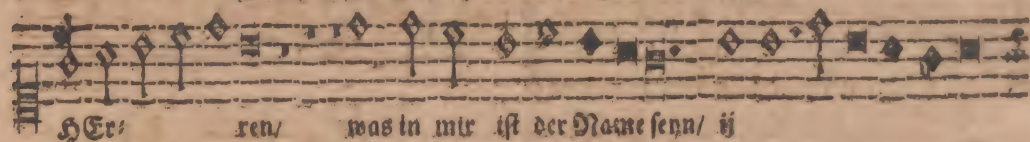 HErꝛ ren/ was in mir iſt der Name ſeyn/ ij